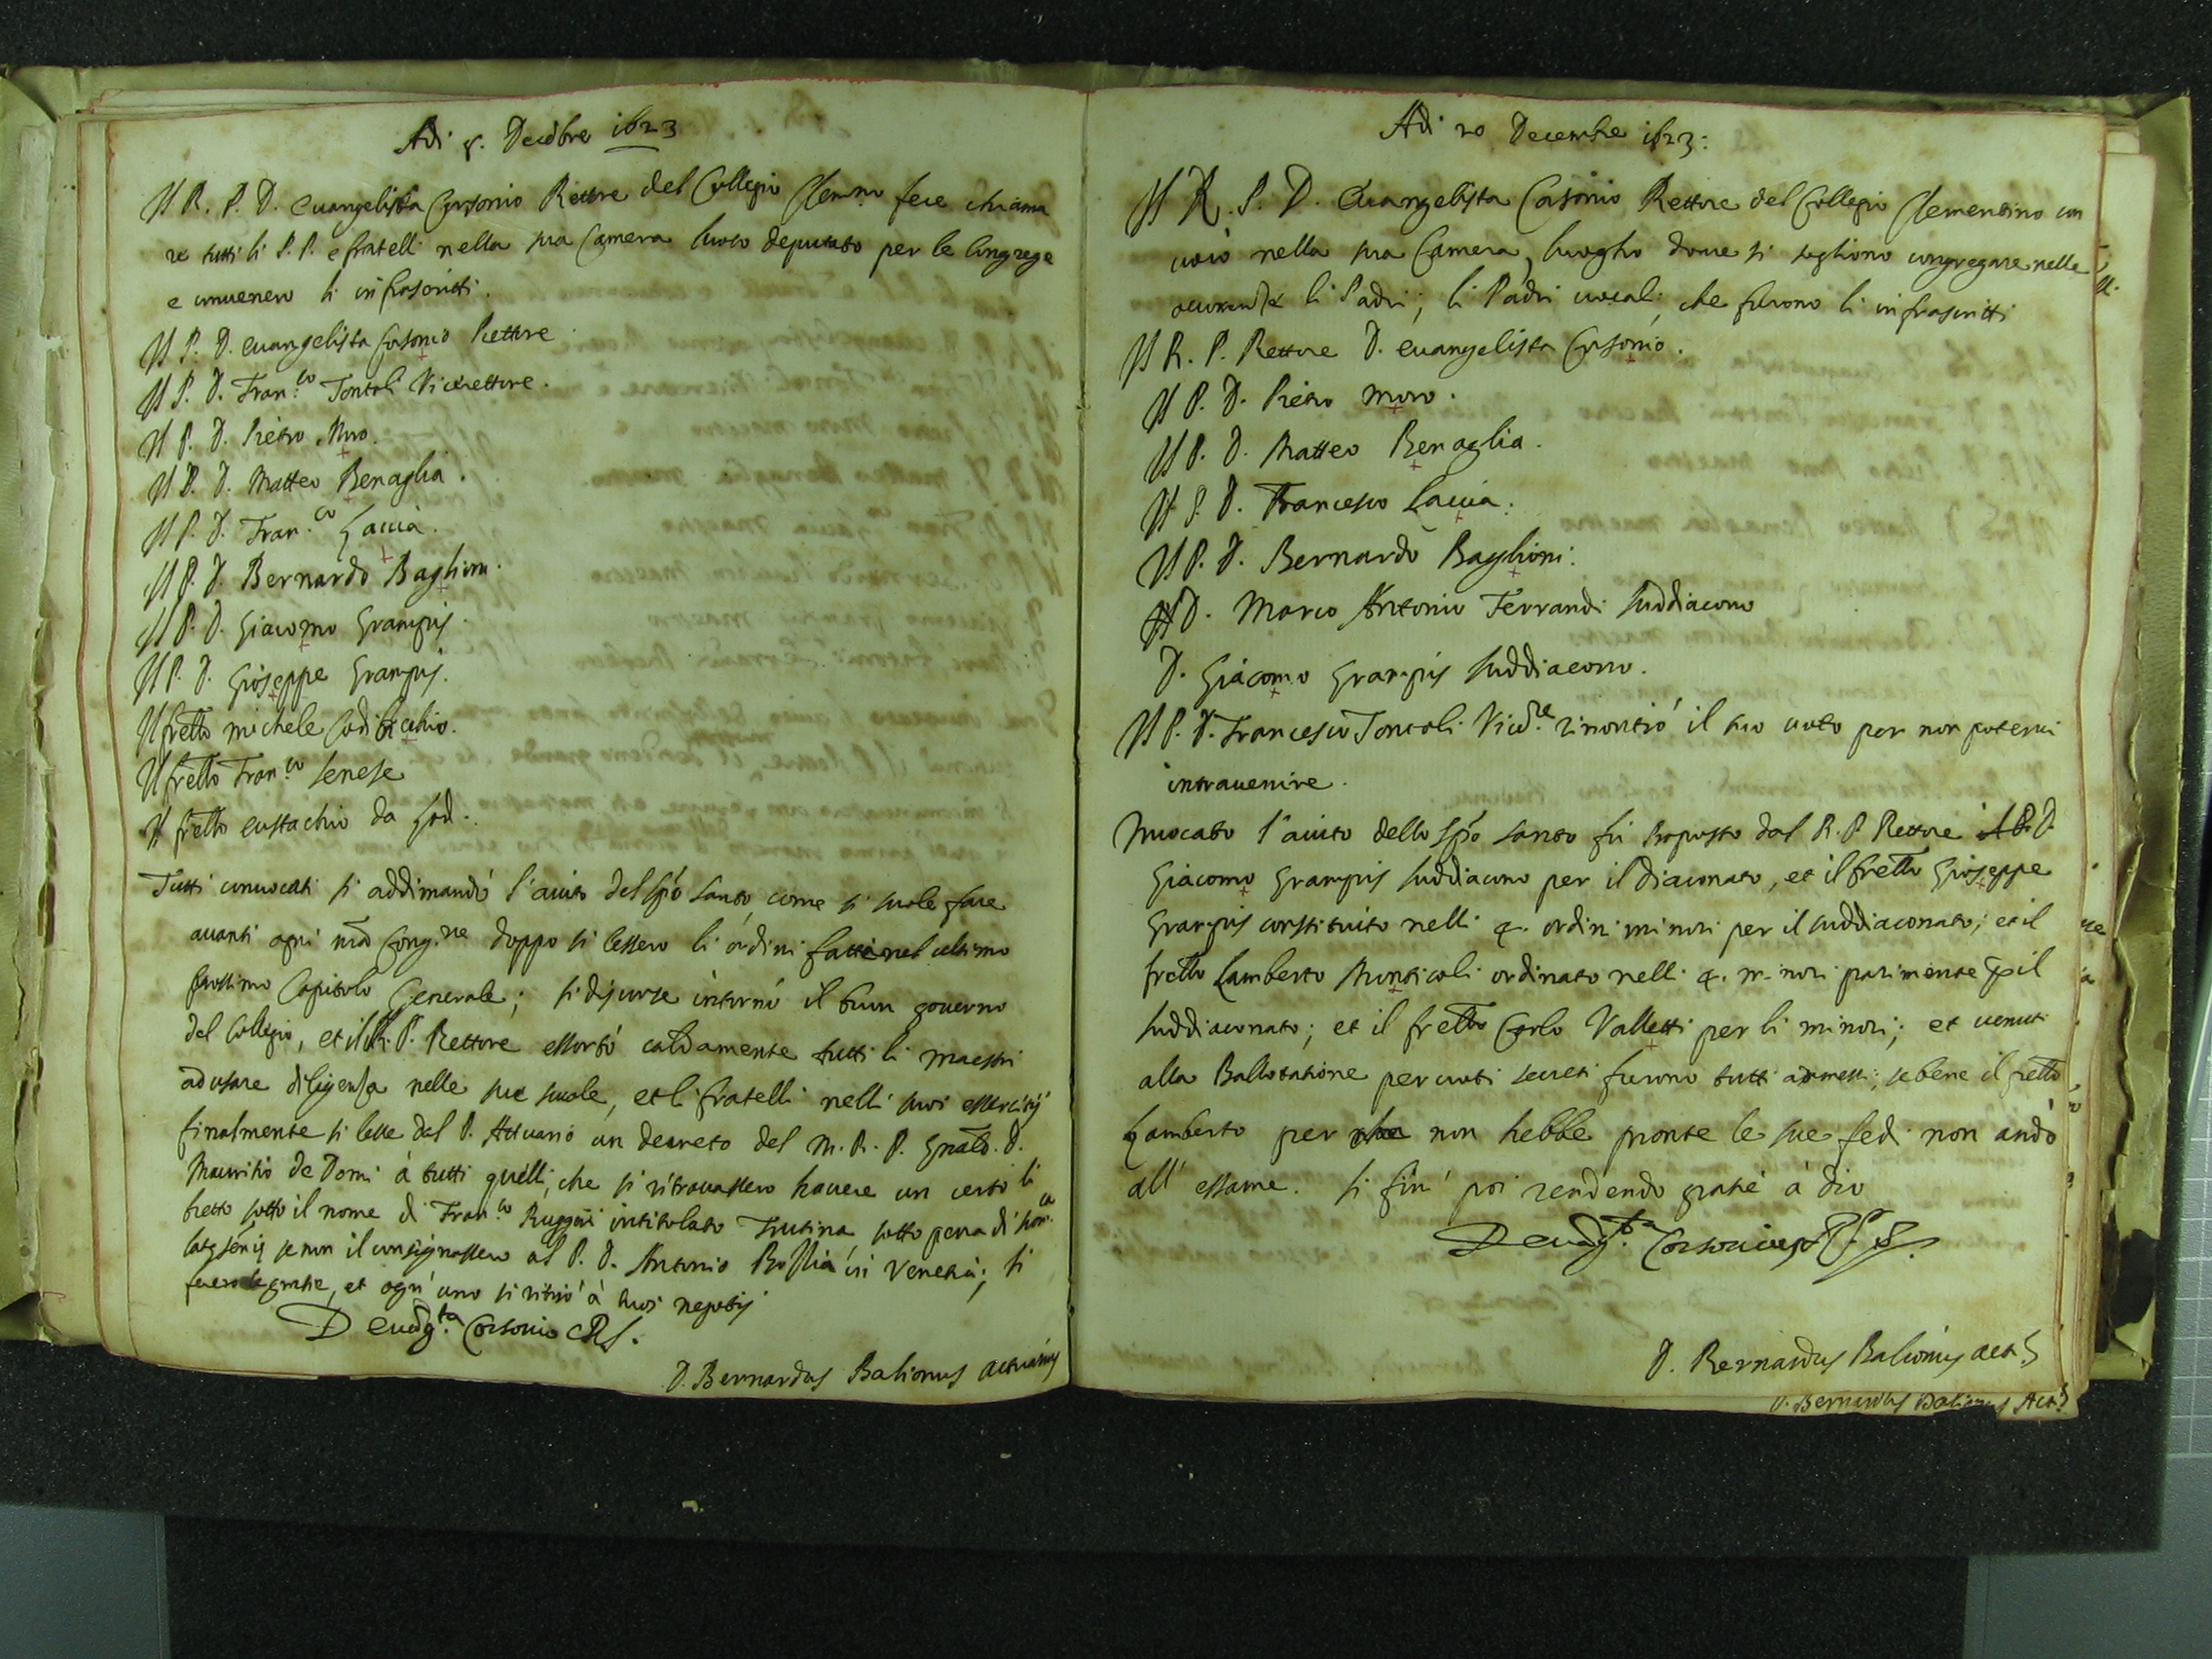 Adi 8. Decēbre 1623
Il R. P. D. Evangelista Corsonio Rettore del Collegio Clemno fece chiama
re tutti li P.P. e fratelli nella sua Camera luoco deputato per le Congrege
e convenero li infrascritti.
Il P. D. evangelista Corsonio Rettore
Il P. D. Fran.co Tontoli Vicerettore.
Il P. D. Pietro Moro.
Il P. D. Matteo Benaglia.
Il P. D. Fran.co Caccia.
Il P. D. Bernardo Baglioni.
Il P. D. Giacomo Grampis.
Il P. D. Gioseppe Grampis.
Il frello michele
Il frello Fran.co senese
Il frello eustachio da Lod.
Tutti convocati si addimandò l'aiuto del Spō Santo come si suole fare
avanti ogni nrā Cong.ne doppo si lessero li ordini fatti nel ultimo
prossimo Capitolo Generale; si discurse intorno il buon governo
del Collegio, et il R. P. Rettore essortò caldamente tutti li maestri
ad usare diligenza nelle sue scuole, et li fratelli nelli suoi essercitij
finalmente si lesse dal P. Attuario un decreto del M. R. P. Gnāle D.
Mauritio de Domi à tutti quelli, che si ritrovassero havere un certo li
bretto sotto il nome di Fran.co Ruggeri intitolato Trutina, sotto pena di scom.ca
latę sentię se non il consignassero al P. D. Antonio in Venetia; si
fecero le gratie, et ogn' uno si ritirò à suoi negotij
D Evāg.ta Corsonio CRS.
D. Bernardus Balionus actuarius
Adi 20 Decembre 1623:
Il R. P. D. Evangelista Corsonio Rettore del Collegio Clementino con
vocò nella sua Camera, luogho dove si sogliono congregare nelle
occorenze li Padri; li Padri vocali, che furono li infrascritti
Il R. P. Rettore D. evangelista Corsonio.
Il P. D. Pietro Moro.
Il P. D. Matteo Benaglia.
Il P. D. Francesco Caccia.
Il P. D. Bernardo Baglioni.
D. Marco Antonio Ferrandi Suddiacono
D. Giacomo Grampis Suddiacono.
Il P. D. Francesco Tontoli Vicē.re rinontiò il suo voto per non potervi
intravenire.
Invocato l'aiuto dello Spō Santo fù proposto dal R. P. Rettore D.
Giacomo Grampis Suddiacono per il diaconato, et il frello Gioseppe
Grampis constituito nelli 4. ordini minori per il suddiaconato; et il
frello Lamberto Monticoli ordinato nelli 4. minori parimente p il
suddiaconato; et il frello Carlo Valletti per li minori; et venuti
alla Ballotatione per voti secreti furono tutti admessi; se bene il frello
Lamberto per che non hebbe pronte le sue fedi non andò
all' essame. Si finì poi rendendo gratie à dio
D Evāg.ta Corsonio
D. Bernardus Balionus act.s
D. Bernardus Balionus Act.s